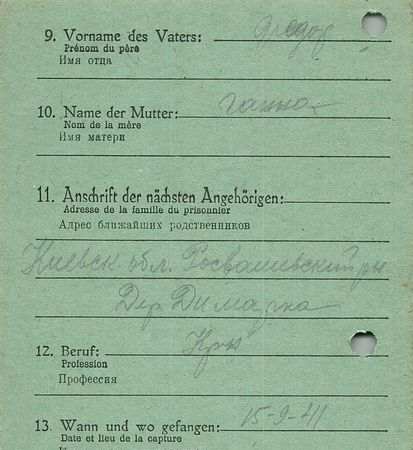 9. Vorname des Vaters: Федор
Prénom du père
Имя отца
10. Name der Mutter: ганна
Nom de la mère
Имя матери
11. Anschrift der nächsten Angehörigen:
Adresse de la famille du prisonnier
Адрес ближайших родственников
Киевск обл. Росвашевский ры
Дер. Димарка
12. Beruf:
Profession
Профессия
13. Wann und wo gefangen: 15-9-41
Date et lieu de la capture